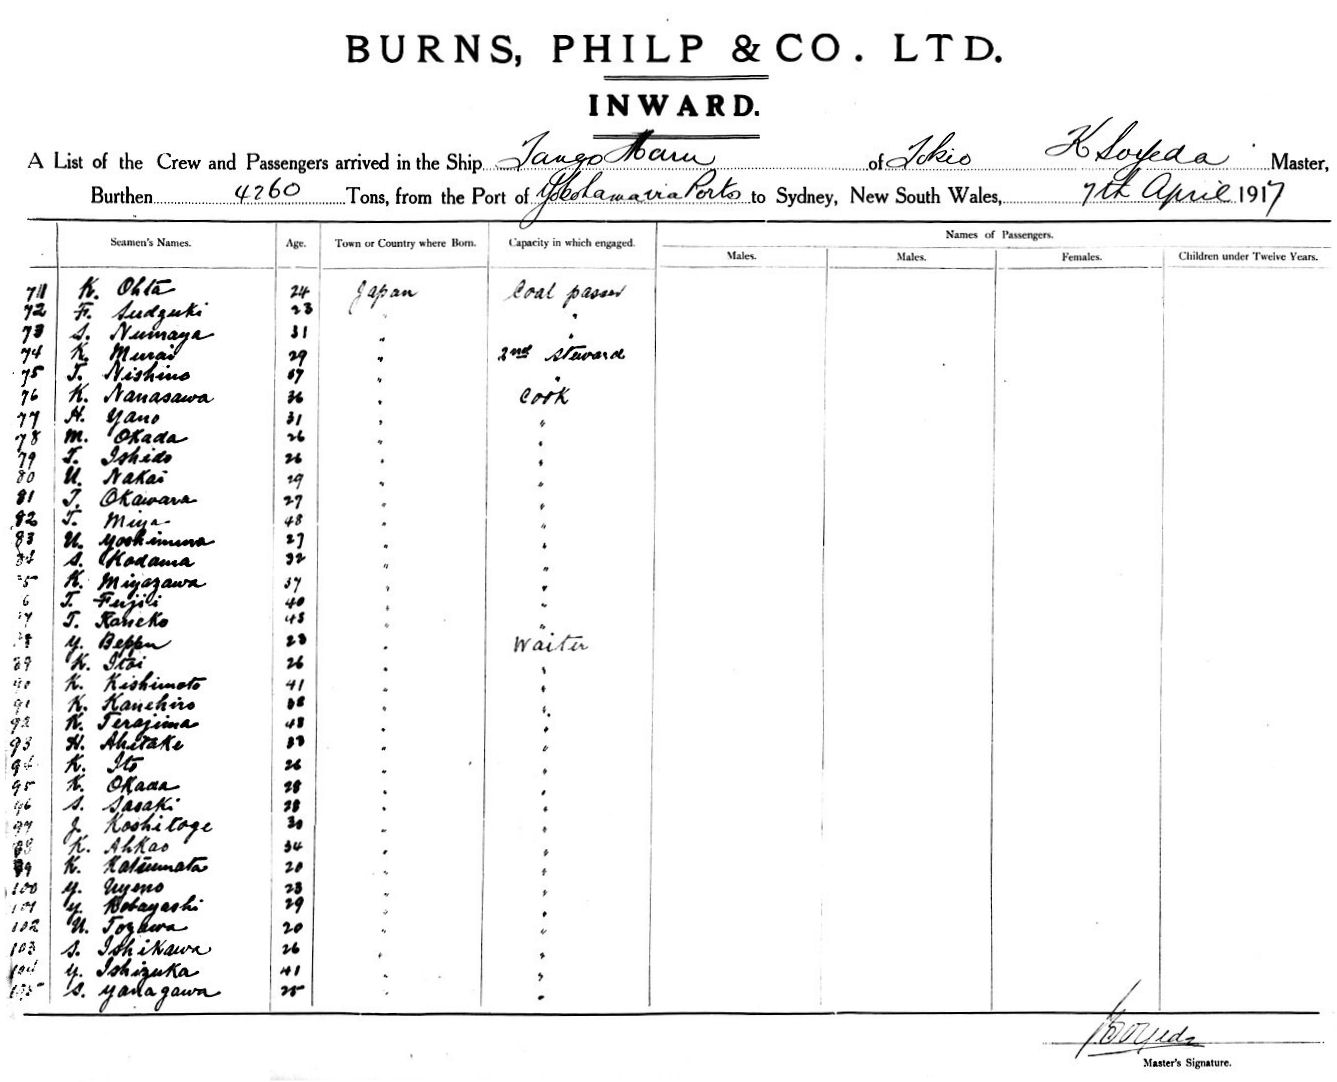 BURNS, PHILP & CO. LTD.
INWARD.
A List of the Crew and Passengers arrived in the Ship Tango Maru of Tokio K Soyeda Master,
Burthen 4260 Tons, from the Port of Yokohama via Ports to Sydney, New South Wales, 7th April 1917
Seamen's Names. Age. Town or Country where Born. Capacity in which engaged. Names of Passengers.
Males. Males. Females. Children under Twelve Years.
71 K. Ohta 24 Japan Coal passer
72 F. Sudzuki 23 " "
73 S. Numaya 31 " "
74 K. Murai 29 " 2nd steward
75 T. Nishino 37 " "
76 K. Nanasawa 36 " Cook
77 H. Yano 31 " "
78 M. Okada 26 " "
79 T. Ishido 26 " "
80 U. Nakai 29 " "
81 T. Okawara 27 " "
82 T. Miya 48 " "
83 U. Yoshimura 27 " "
84 S. Kodama 32 " "
5 K. Miyazawa 37 " "
6 T. Fujii 40 " "
7 T. Kaneko 43 " "
8 Y. Beppu 23 " Waiter
89 K. Itoi 26 " "
90 K. Kishimoto 41 " "
91 K. Kanehiro 38 " "
92 K. Terajima 48 " "
93 H. Ahitake 33 " "
94 K. Ito 26 " "
95 K. Okada 28 " "
96 S. Sasaki 28 " "
97 J. Koshitoge 30 " "
98 K. Ahkao 34 " "
99 K. Katsumata 20 " "
100 Y. Uyeno 23 " "
101 Y. Kobayashi 29 " "
102 U. Tozawa 20 " "
103 S. Ishikawa 26 " "
104 Y. Ishizuka 41 " "
105 S. Yanagawa 25 " "
K Soyeda
Master's Signature.